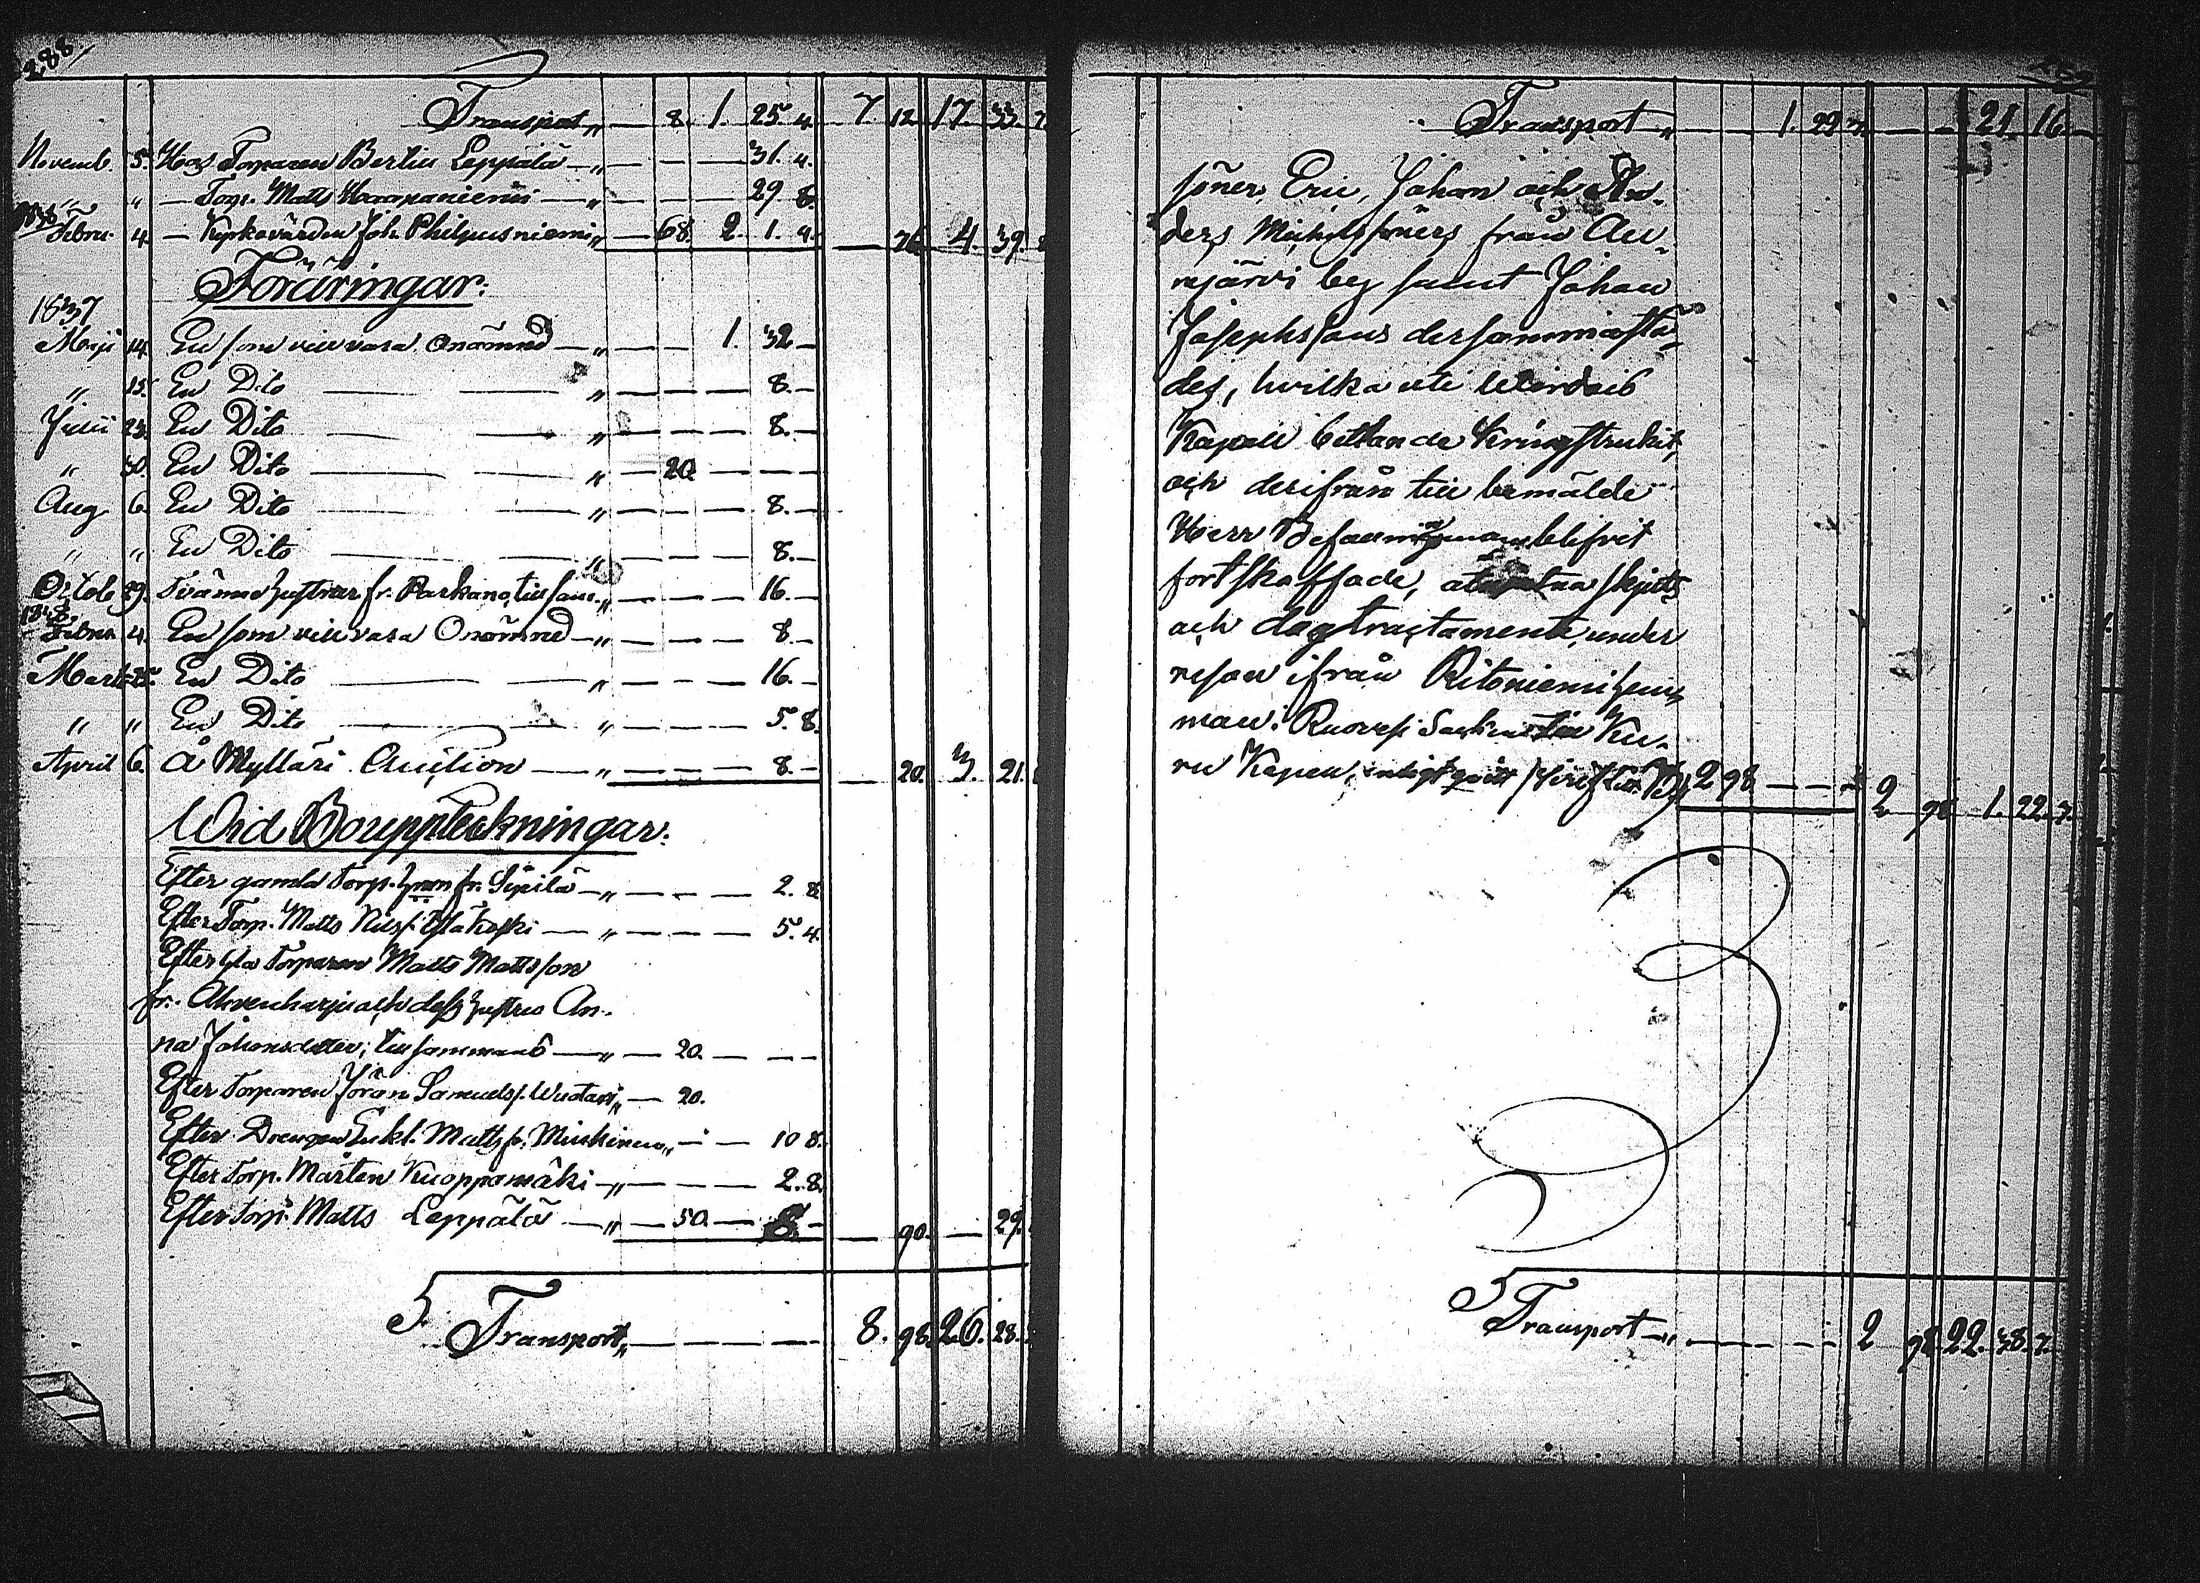 288.
Transport „ — 8. 1. 25. 4. 7. 12. 17. 33.
Novemb. 5. Hos Torparen Bertus Leppälä — „ — — — 31. 4.
„ „ — Torp. Matts Haapaniemi — „ — — — 29. 8.
1838 Febru. 4. — Kyrkovärden Joh. Philpusniemi „ — 68. 2. 1. 4. — 76. 4. 39.
Föräringar:
1837
Maji 14. En som vill vara Onämnd — „ — — 1. 32 —
„ 15. En Dito — — „ — — — 8. —
Julii 23. En Dito — — „ — — — 8. —
„ 30. En Dito — — „ — 20. — — —
Aug 6. En Dito — — „ — — — 8. —
„ „ En Dito — — „ — — — 8. —
Octob 29. Tvänne hustrur fr. Parkano, till sam. „ — — — 16. —
1838. Febru. 4. En som vill vara Onämnd — „ — — — 8. —
Mart. 25. En Dito — — „ — — — 16. —
„ „ En Dito — — „ — — — 5. 8.
April 6. Å Mylläri Auction — „ — — — 8. — — 20. 3. 21.
Wid Bouppteckningar:
Efter gamla Torp. fr. Sipilä — „ — — — 2. 8.
Efter Torp. Matts Nilss. — „ — — — 5. 4.
Efter Torparen Matts Mattsson
fr. Ahvenharju och dess hustru An-
na Johansdotter, tillsammans — „ — 20. — — —
Efter Torparen Jöran Samuelss. „ — 20.
Efter Drengen Matts fr. „ — — 10 8.
Efter Torp. Mårten Kuoppamäki — „ — — — 2. 8.
Efter Torp. Matts Leppälä — „ — 50. — 8. — — 90. — 29.
S. Transport „ — — — — 8. 98. 26. 28.
Transport „ — — 1. 29 — — 21. 16. —
söner, Eric, Johan och An-
ders Michelssöners från Au-
rejärvi by samt Johan
Josephssons dersammastä-
des, hvilka uti
Kapell bettlande kringstrukit,
och derifrån till bemälde
Herr Befallningsman blifvit
fortskaffade, skjuts
och dagtractamente under
resan ifrån Ritoniemi hem-
man i Ruovesi Socken till Ku-
ru Kapell, enligt qvitt 2 98 — — — 2 98 1. 22. 7.
S
Transport „ — — — — 2 98 22. 38. 7.